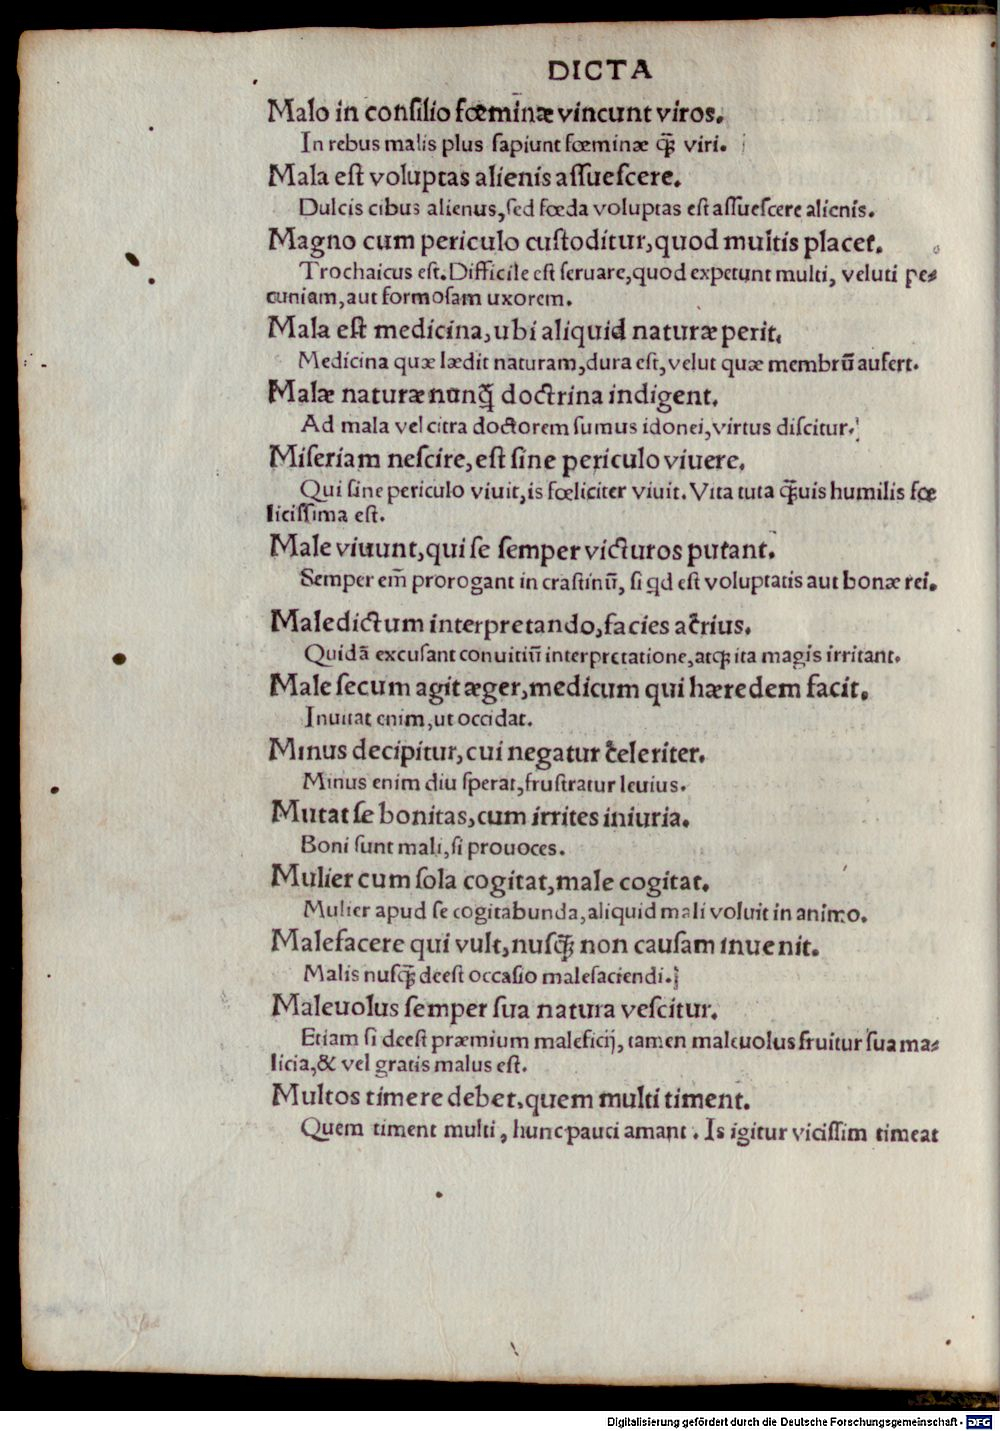 DICTA
Malo in consilio fœminæ vincunt viros.
In rebus malis plus sapiunt fœminæ ꝙ̃ viri.
Mala est voluptas alienis assuescere.
Dulcis cibus alienus, sed fœda voluptas est assuescere alienis.
Magno cum periculo custoditur, quod multis placet.
Trochaicus est. Difficile est seruare, quod expetunt multi, veluti pe⸗
cuniam, aut formosam uxorem.
Mala est medicina, ubi aliquid naturæ perit.
Medicina quæ lædit naturam, dura est, velut quæ membrũ aufert.
Malæ naturæ nunꝙ̃ doctrina indigent.
Ad mala vel citra doctorem sumus idonei, virtus discitur.
Miseriam nescire, est sine periculo viuere.
Qui sine periculo viuit, is fœliciter viuit. Vita tuta ꝙ̃uis humilis fœ
licissima est.
Male viuunt, qui se semper victuros putant.
Semper em̃ prorogant in crastinũ, si qd est voluptatis aut bonæ rei.
Maledictum interpretando, facies acrius.
Quidã excusant conuitiũ interpretatione, atqꝫ ita magis irritant.
Male secum agit æger, medicum qui hæredem facit.
Inuitat enim, ut occidat.
Minus decipitur, cui negatur celeriter.
Minus enim diu sperat, frustratur leuius.
Mutat se bonitas, cum irrites iniuria.
Boni sunt mali, si prouoces.
Mulier cum sola cogitat, male cogitat.
Mulier apud se cogitabunda, aliquid mali voluit in animo.
Malefacere qui vult, nusꝙ̃ non causam inuenit.
Malis nusꝙ̃ deest occasio malefaciendi.
Maleuolus semper sua natura vescitur.
Etiam si deest præmium maleficij, tamen maleuolus fruitur sua ma⸗
licia, & vel gratis malus est.
Multos timere debet, quem multi timent.
Quem timent multi, hunc pauci amant. Is igitur vicissim timeat
Digitalisierung gefördert durch die Deutsche Forschungsgemeinschaft - DFG